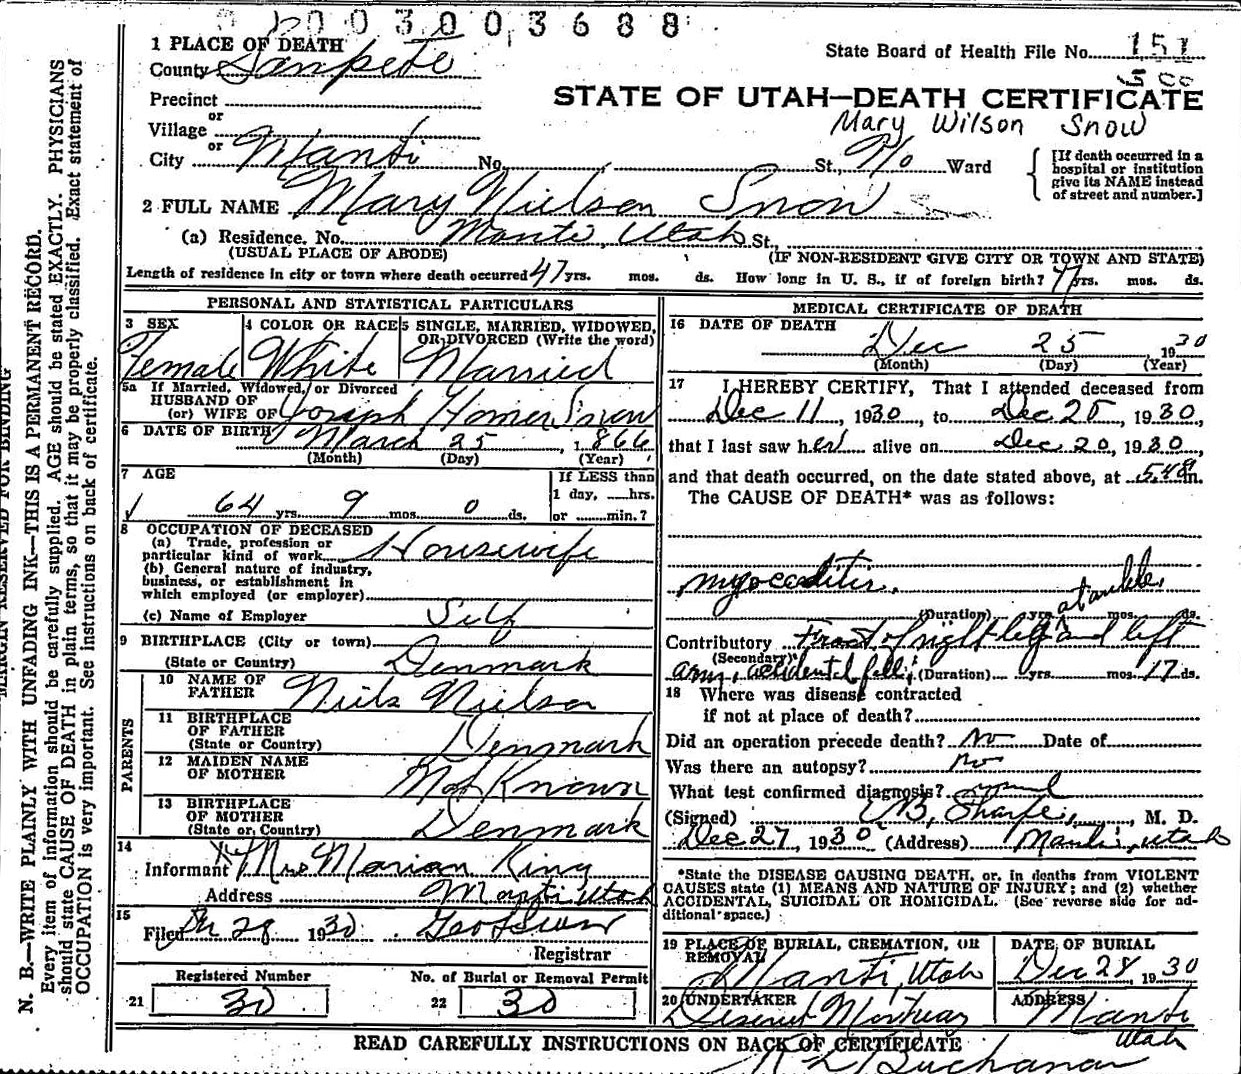 003003688
1 PLACE OF DEATH
County Sanpete
State Board of Health File No. 151
Precinct
or
STATE OF UTAH—DEATH CERTIFICATE
Mary Wilson Snow
Village
or
City Manti No. St., Ward
[If death occurred in a hospital or institution give its NAME instead of street and number.]
2 FULL NAME Mary Nielson Snow
(a) Residence. No. Manti, Utah St.,
(USUAL PLACE OF ABODE) (IF NON-RESIDENT GIVE CITY OR TOWN AND STATE)
Length of residence in city or town where death occurred 47 yrs. mos. ds. How long in U. S., if of foreign birth? 47 yrs. mos. ds.
PERSONAL AND STATISTICAL PARTICULARS
3 SEX Female
4 COLOR OR RACE White
5 SINGLE, MARRIED, WIDOWED, OR DIVORCED (Write the word) Married
5a If Married, Widowed, or Divorced
HUSBAND OF
(or) WIFE OF Joseph Homer Snow
6 DATE OF BIRTH March 25, 1866
(Month) (Day) (Year)
7 AGE
64 yrs. 9 mos. 0 ds.
If LESS than 1 day, hrs. or min.?
8 OCCUPATION OF DECEASED
(a) Trade, profession or particular kind of work Housewife
(b) General nature of industry, business, or establishment in which employed (or employer)
(c) Name of Employer Self
9 BIRTHPLACE (City or town)
(State or Country) Denmark
PARENTS
10 NAME OF FATHER Niels Nielson
11 BIRTHPLACE OF FATHER (State or Country) Denmark
12 MAIDEN NAME OF MOTHER Not Known
13 BIRTHPLACE OF MOTHER (State or Country) Denmark
14
Informant Mrs Marian King
Address Manti Utah
15
Filed 28 1930
Registrar
Registered Number
21 30
No. of Burial or Removal Permit
22 30
MEDICAL CERTIFICATE OF DEATH
16 DATE OF DEATH
Dec 25 1930
(Month) (Day) (Year)
17 I HEREBY CERTIFY, That I attended deceased from
Dec 11, 1930, to Dec 25, 1930,
that I last saw her alive on Dec 20, 1930,
and that death occurred, on the date stated above, at 5.48 m.
The CAUSE OF DEATH* was as follows:
myocarditis.
(Duration) yrs. mos. ds.
at ankle
Contributory Fract of right leg and left
(Secondary)
arm, accidental fall; (Duration) yrs. mos. 17 ds.
18 Where was disease contracted
if not at place of death?
Did an operation precede death? No Date of
Was there an autopsy? No
What test confirmed diagnosis?
(Signed) Sharpe, M. D.
Dec 27, 1930 (Address) Manti, Utah
*State the DISEASE CAUSING DEATH, or, in deaths from VIOLENT
CAUSES state (1) MEANS AND NATURE OF INJURY; and (2) whether
ACCIDENTAL, SUICIDAL OR HOMICIDAL. (See reverse side for ad-
ditional space.)
19 PLACE OF BURIAL, CREMATION, OR REMOVAL
Manti, Utah
DATE OF BURIAL
Dec 28 1930
20 UNDERTAKER
Deseret Mortuary
ADDRESS
Manti Utah
READ CAREFULLY INSTRUCTIONS ON BACK OF CERTIFICATE
Buchanan
MARGIN RESERVED FOR BINDING
N. B.—WRITE PLAINLY WITH UNFADING INK—THIS IS A PERMANENT RECORD.
Every item of information should be carefully supplied. AGE should be stated EXACTLY. PHYSICIANS
should state CAUSE OF DEATH in plain terms, so that it may be properly classified. Exact statement of
OCCUPATION is very important. See instructions on back of certificate.